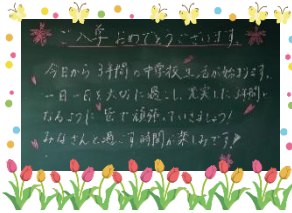 ご入学おめでとうございます。
今日から3年間の中学校生活が始まります。
一日一日を大切に過ごし、充実した3年間に
なるように皆で頑張っていきましょう!
みなさんと過ごす時間が楽しみです!